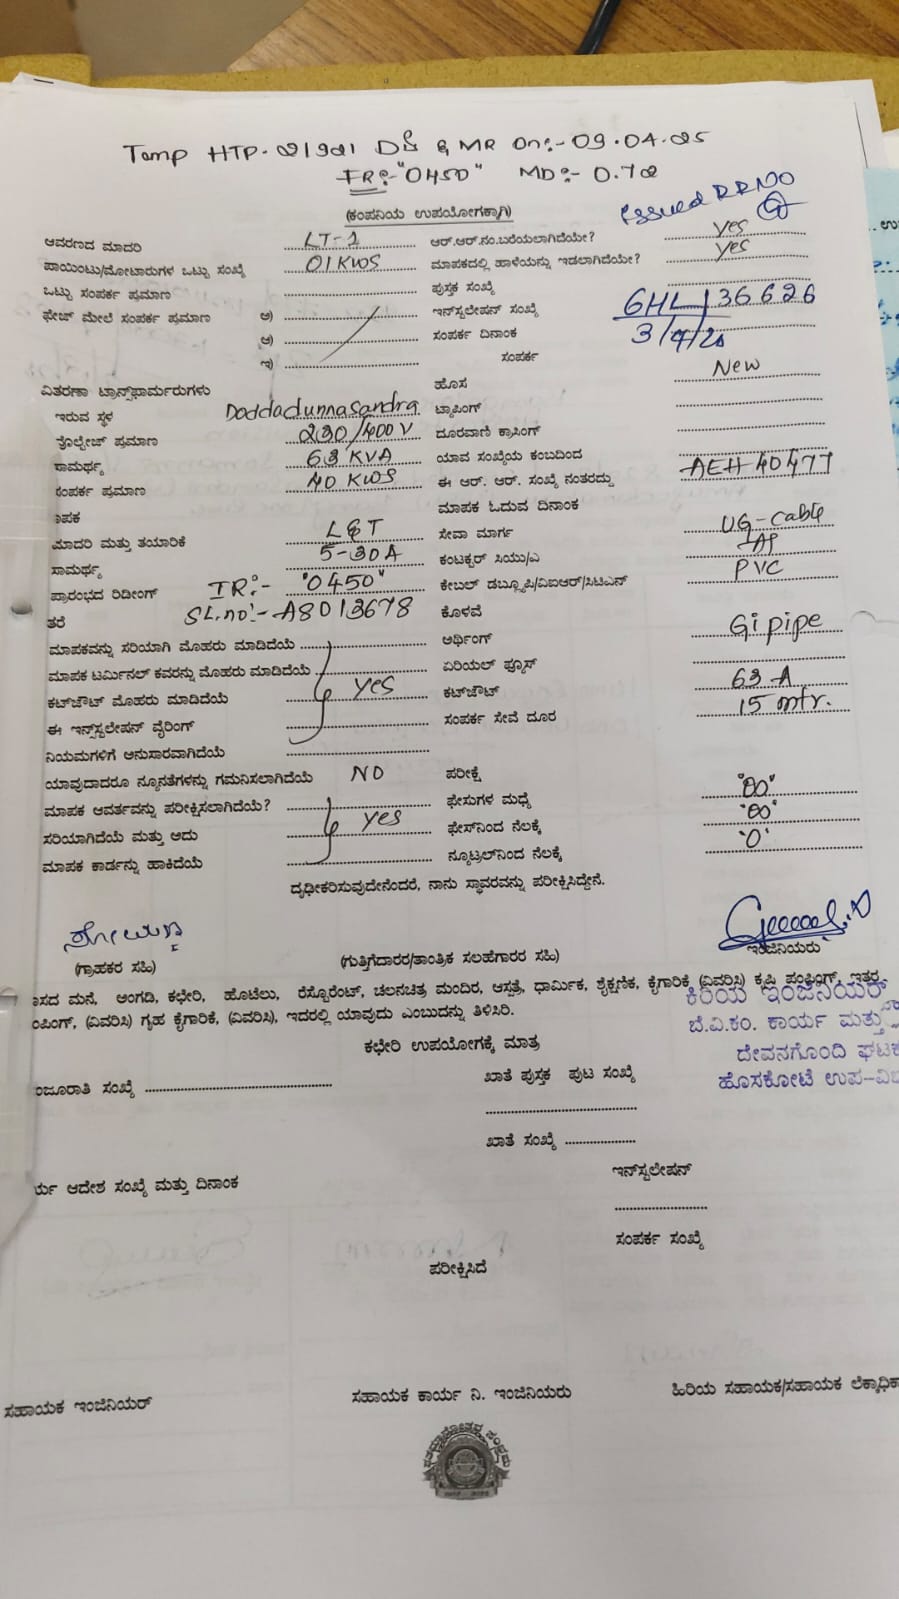 Temp HTP-21921 DS & MR On:- 09.04.25
FR:- "0450" MD:- 0.72
Issued RRNO
(ಕಂಪನಿಯ ಉಪಯೋಗಕ್ಕಾಗಿ)
ಆವರಣದ ಮಾದರಿ LT-1 ಆರ್.ಆರ್.ನಂ.ಬರೆಯಲಾಗಿದೆಯೇ? yes
ಪಾಯಿಂಟು/ಮೋಟಾರುಗಳ ಒಟ್ಟು ಸಂಖ್ಯೆ 01KWS ಮಾಪಕದಲ್ಲಿ ಹಾಳೆಯನ್ನು ಇಡಲಾಗಿದೆಯೇ? yes
ಒಟ್ಟು ಸಂಪರ್ಕ ಪ್ರಮಾಣ ಪುಸ್ತಕ ಸಂಖ್ಯೆ
ಫೇಜ್ ಮೇಲೆ ಸಂಪರ್ಕ ಪ್ರಮಾಣ ಅ) ಇನ್‌ಸ್ಟಲೇಷನ್ ಸಂಖ್ಯೆ GHL/36626
ಆ) ಸಂಪರ್ಕ ದಿನಾಂಕ
ಇ) ಸಂಪರ್ಕ
ವಿತರಣಾ ಟ್ರಾನ್ಸ್‌ಫಾರ್ಮರುಗಳು ಹೊಸ New
ಇರುವ ಸ್ಥಳ Doddadunnasandra ಟ್ಯಾಪಿಂಗ್
ವೋಲ್ಟೇಜ್ ಪ್ರಮಾಣ 230/400V ದೂರವಾಣಿ ಕ್ರಾಸಿಂಗ್
ಸಾಮರ್ಥ್ಯ 63 KVA ಯಾವ ಸಂಖ್ಯೆಯ ಕಂಬದಿಂದ
ಸಂಪರ್ಕ ಪ್ರಮಾಣ 40 KWS ಈ ಆರ್. ಆರ್. ಸಂಖ್ಯೆ ನಂತರದ್ದು AEH40477
ಪಕ ಮಾಪಕ ಓದುವ ದಿನಾಂಕ
ಮಾದರಿ ಮತ್ತು ತಯಾರಿಕೆ L&T ಸೇವಾ ಮಾರ್ಗ UG-Cable
ಸಾಮರ್ಥ್ಯ 5-30A ಕಂಟಕ್ಟರ್ ಸಿಯು/ಎ
ಪ್ರಾರಂಭದ ರಿಡೀಂಗ್ IR:- "0450" ಕೇಬಲ್ ಡಬ್ಲ್ಯೂಪಿ/ವಿಐಆರ್/ಸಿಟಿಎನ್ PVC
ತರೆ SL.no:- A8013678 ಕೊಳವೆ
ಮಾಪಕವನ್ನು ಸರಿಯಾಗಿ ಮೊಹರು ಮಾಡಿದೆಯೆ ಅರ್ಥಿಂಗ್ Gi pipe
ಮಾಪಕ ಟರ್ಮಿನಲ್ ಕವರನ್ನು ಮೊಹರು ಮಾಡಿದೆಯೆ ಏರಿಯಲ್ ಫ್ಯೂಸ್
ಕಟ್‌ಔಟ್ ಮೊಹರು ಮಾಡಿದೆಯೆ yes ಕಟ್‌ಔಟ್ 63 A
ಈ ಇನ್‌ಸ್ಟಲೇಷನ್ ವೈರಿಂಗ್ ಸಂಪರ್ಕ ಸೇವೆ ದೂರ 15 mtr.
ನಿಯಮಗಳಿಗೆ ಅನುಸಾರವಾಗಿದೆಯೆ
ಯಾವುದಾದರೂ ನ್ಯೂನತೆಗಳನ್ನು ಗಮನಿಸಲಾಗಿದೆಯೆ NO ಪರೀಕ್ಷೆ
ಮಾಪಕ ಆವರ್ತವನ್ನು ಪರೀಕ್ಷಿಸಲಾಗಿದೆಯೆ? ಫೇಸುಗಳ ಮಧ್ಯೆ
ಸರಿಯಾಗಿದೆಯೆ ಮತ್ತು ಅದು yes ಫೇಸ್‌ನಿಂದ ನೆಲಕ್ಕೆ
ಮಾಪಕ ಕಾರ್ಡನ್ನು ಹಾಕಿದೆಯೆ ನ್ಯೂಟ್ರಲ್‌ನಿಂದ ನೆಲಕ್ಕೆ '0'
ದೃಢೀಕರಿಸುವುದೇನೆಂದರೆ, ನಾನು ಸ್ಥಾವರವನ್ನು ಪರೀಕ್ಷಿಸಿದ್ದೇನೆ.
(ಗ್ರಾಹಕರ ಸಹಿ) (ಗುತ್ತಿಗೆದಾರರ/ತಾಂತ್ರಿಕ ಸಲಹೆಗಾರರ ಸಹಿ) ಇಂಜಿನಿಯರು
ಾಸದ ಮನೆ, ಅಂಗಡಿ, ಕಛೇರಿ, ಹೊಟೆಲು, ರೆಸ್ಟೊರೆಂಟ್, ಚಲನಚಿತ್ರ ಮಂದಿರ, ಆಸ್ಪತ್ರೆ, ಧಾರ್ಮಿಕ, ಶೈಕ್ಷಣಿಕ, ಕೈಗಾರಿಕೆ (ವಿವರಿಸಿ) ಕೃಷಿ ಪಂಪಿಂಗ್, ಇತರ
ಂಪಿಂಗ್, (ವಿವರಿಸಿ) ಗೃಹ ಕೈಗಾರಿಕೆ, (ವಿವರಿಸಿ), ಇದರಲ್ಲಿ ಯಾವುದು ಎಂಬುದನ್ನು ತಿಳಿಸಿರಿ.
ಕಿರಿಯ ಇಂಜಿನಿಯರ್
ಬೆ.ವಿ.ಕಂ. ಕಾರ್ಯ ಮತ್ತು
ದೇವನಗೊಂದಿ ಘಟಕ
ಹೊಸಕೋಟೆ ಉಪ-ವಿಭ
ಕಛೇರಿ ಉಪಯೋಗಕ್ಕೆ ಮಾತ್ರ
ಂಜೂರಾತಿ ಸಂಖ್ಯೆ ಖಾತೆ ಪುಸ್ತಕ ಪುಟ ಸಂಖ್ಯೆ
ಖಾತೆ ಸಂಖ್ಯೆ
ರ್ಯ ಆದೇಶ ಸಂಖ್ಯೆ ಮತ್ತು ದಿನಾಂಕ ಇನ್‌ಸ್ಟಲೇಷನ್
ಸಂಪರ್ಕ ಸಂಖ್ಯೆ
ಪರೀಕ್ಷಿಸಿದೆ
ಸಹಾಯಕ ಇಂಜಿನಿಯರ್ ಸಹಾಯಕ ಕಾರ್ಯ ನಿ. ಇಂಜಿನಿಯರು ಹಿರಿಯ ಸಹಾಯಕ/ಸಹಾಯಕ ಲೆಕ್ಕಾಧಿಕಾ